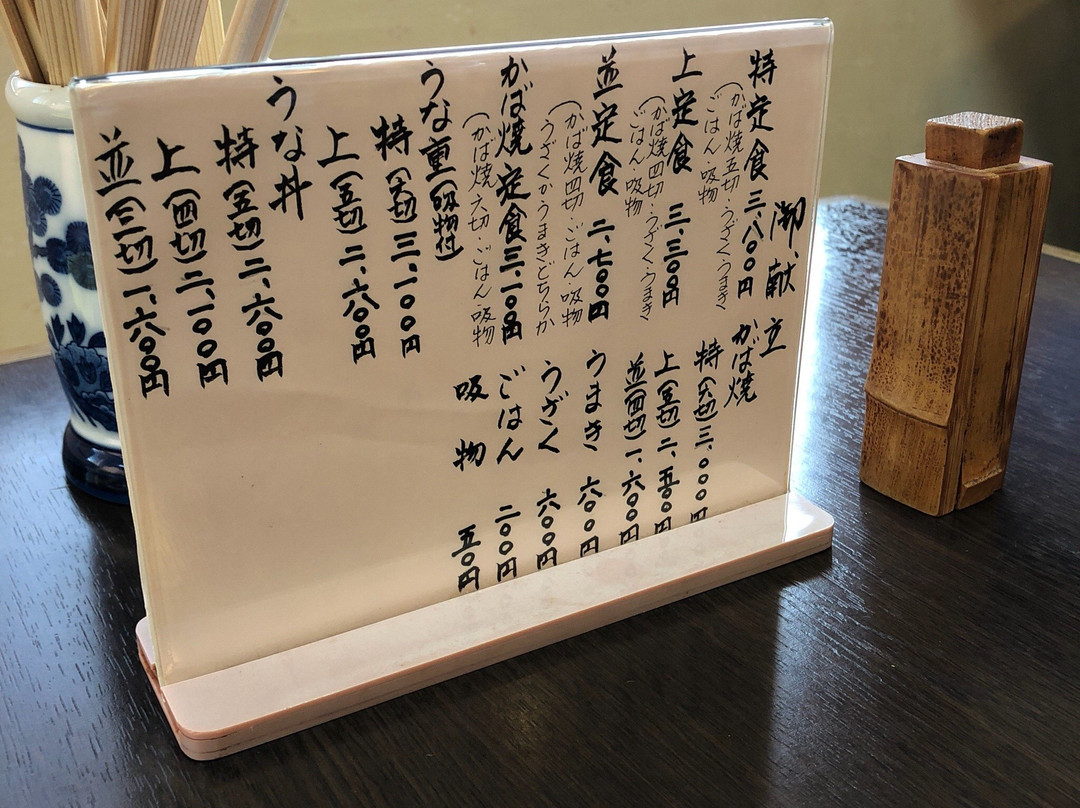 御献立
特定食 三、八〇〇円
(かば焼五切・うざく・うまき
ごはん・吸物
上定食 三、三〇〇円
(かば焼四切・うざく・うまき
ごはん・吸物
並定食 二、七〇〇円
(かば焼四切・ごはん・吸物
うざくかうまきどちらか
かば焼定食 三、一〇〇円
(かば焼六切・ごはん吸物
うな重(吸物付)
特(六切)三、一〇〇円
上(五切)二、六〇〇円
うな丼
特(五切)二、六〇〇円
上(四切)二、一〇〇円
並(三切)一、六〇〇円
かば焼
特(六切)三、〇〇〇円
上(五切)二、五〇〇円
並(四切)一、六〇〇円
うまき 六〇〇円
うざく 六〇〇円
ごはん 二〇〇円
吸物 五〇円